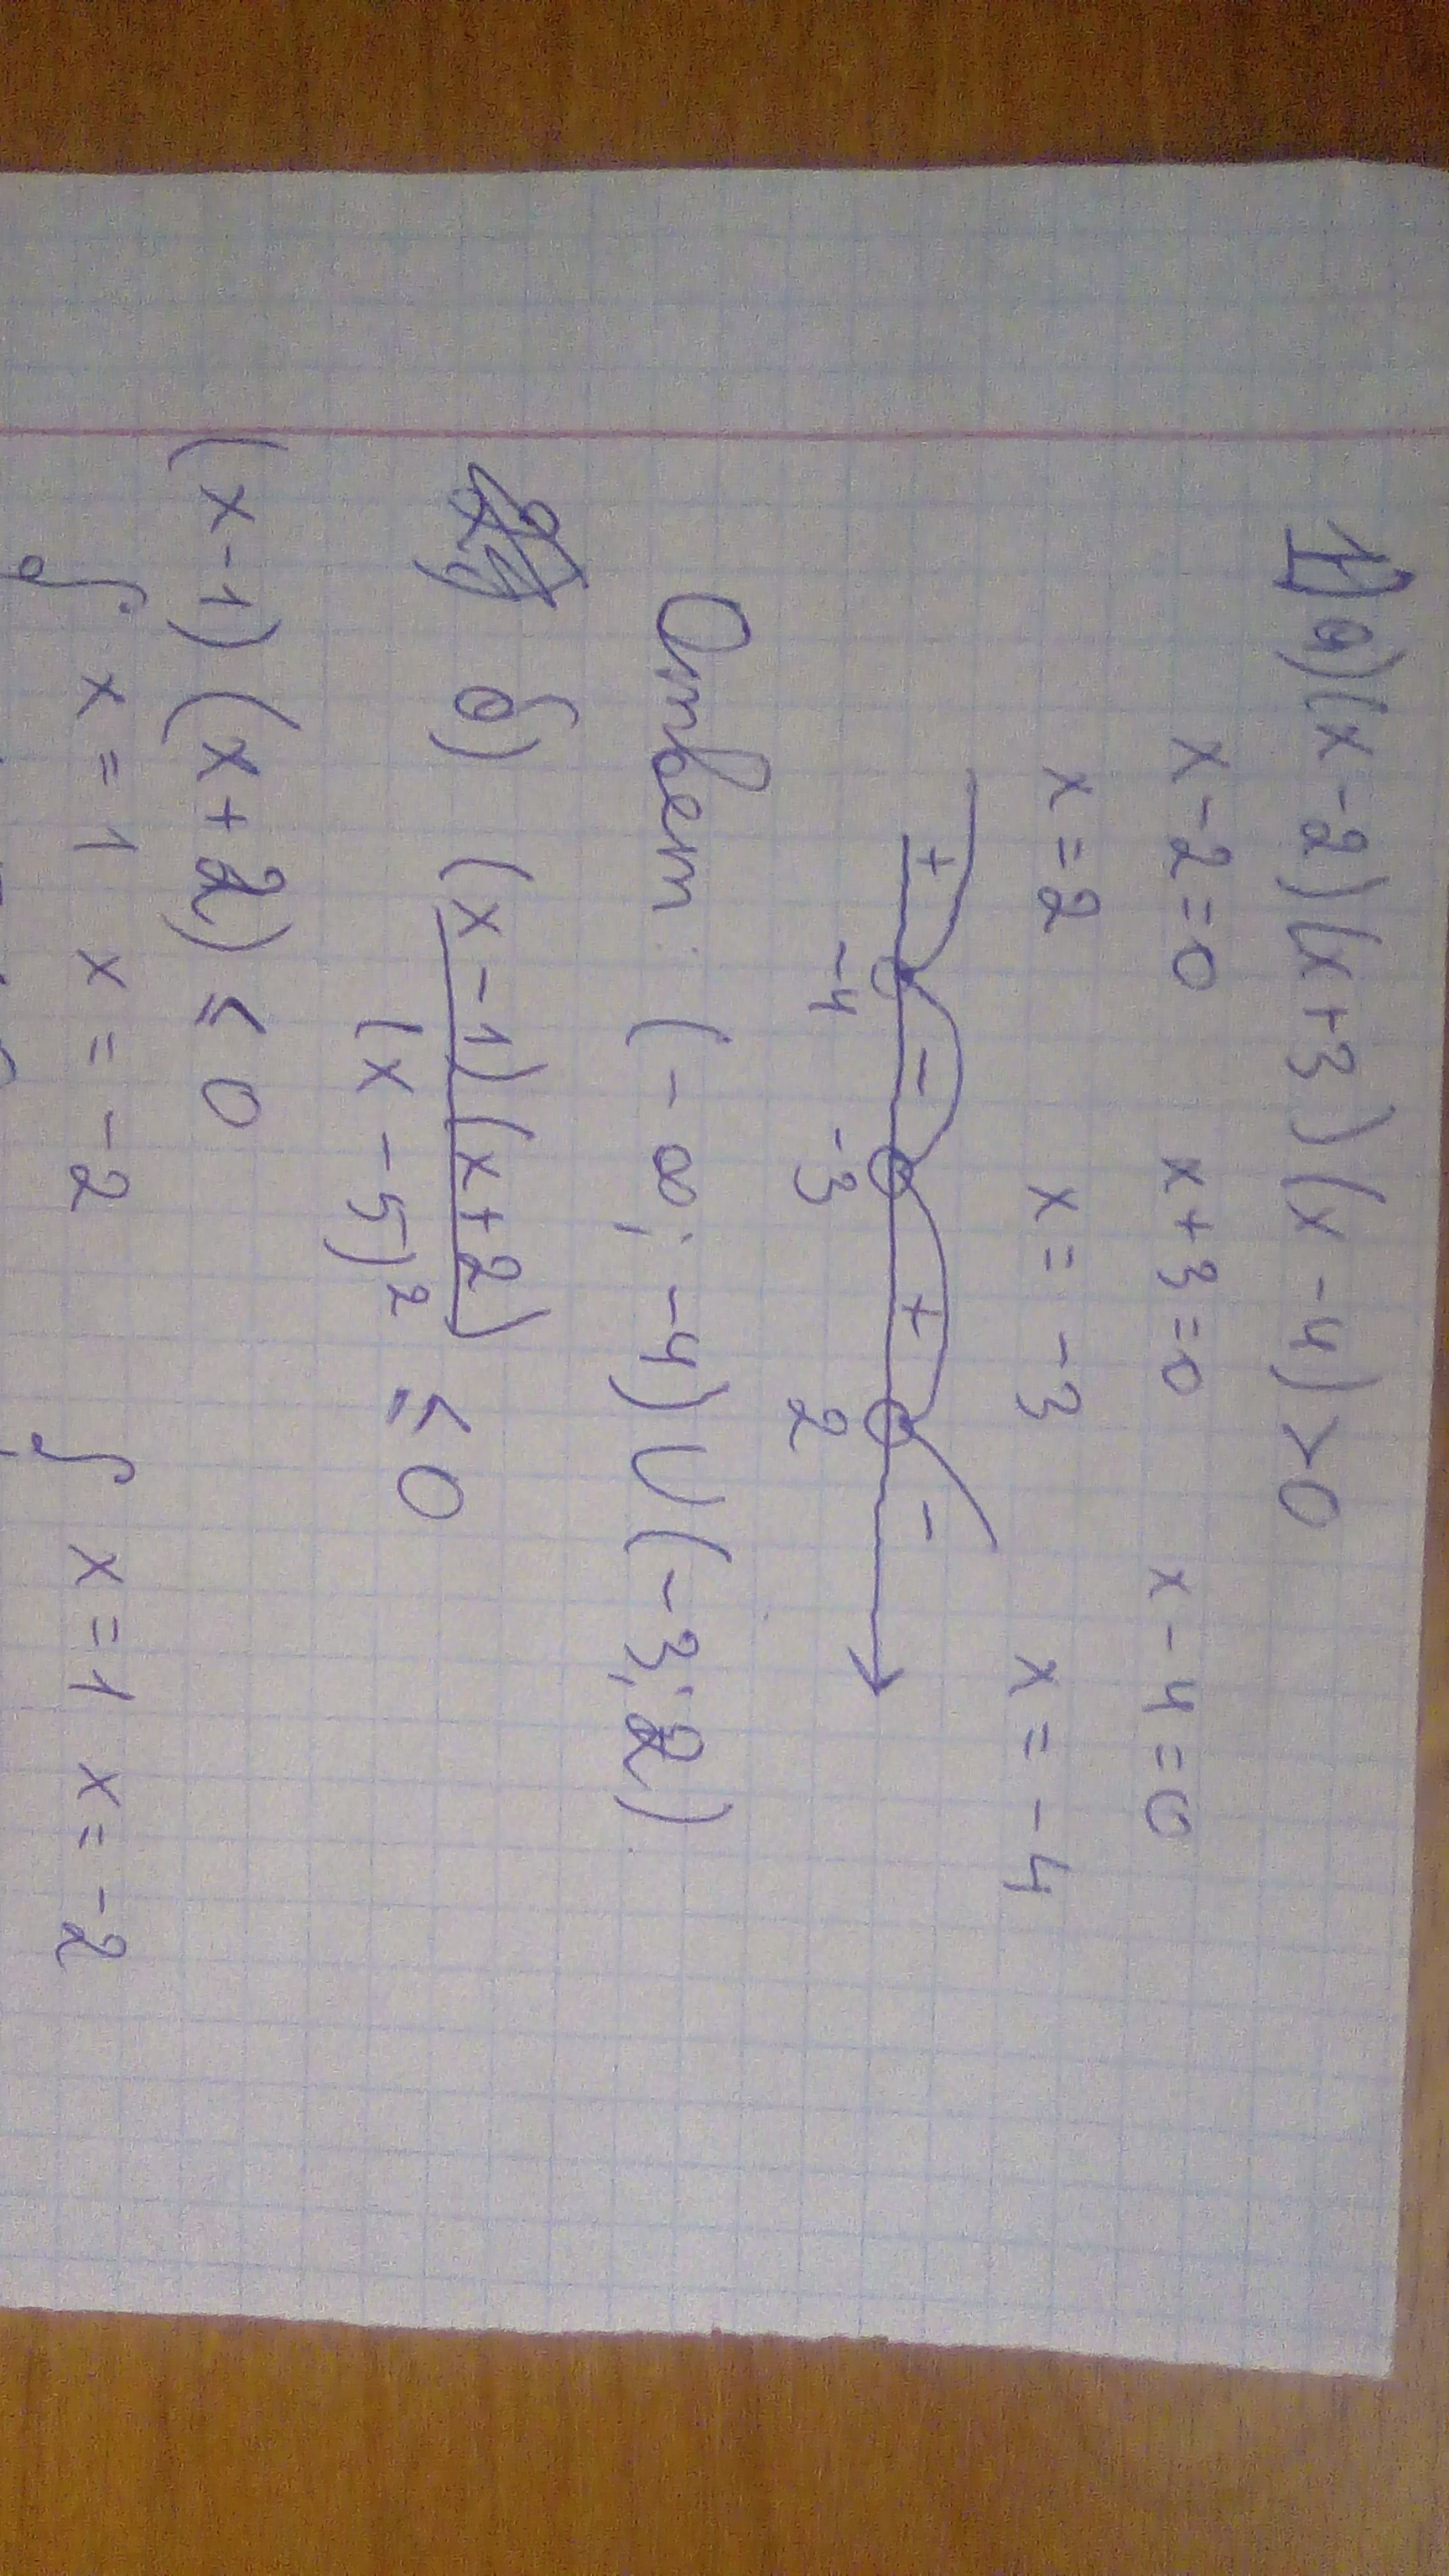 1) а) (x-2)(x+3)(x-4)>0
x-2=0 x+3=0 x-4=0
x=2 x=-3 x=-4
+ - + -
-4 -3 2
Ответ: (-∞; -4) U (-3; 2)
б) (x-1)(x+2)
(x-5)² ≤ 0
(x-1)(x+2) ≤ 0
x=1 x=-2 x=1 x=-2